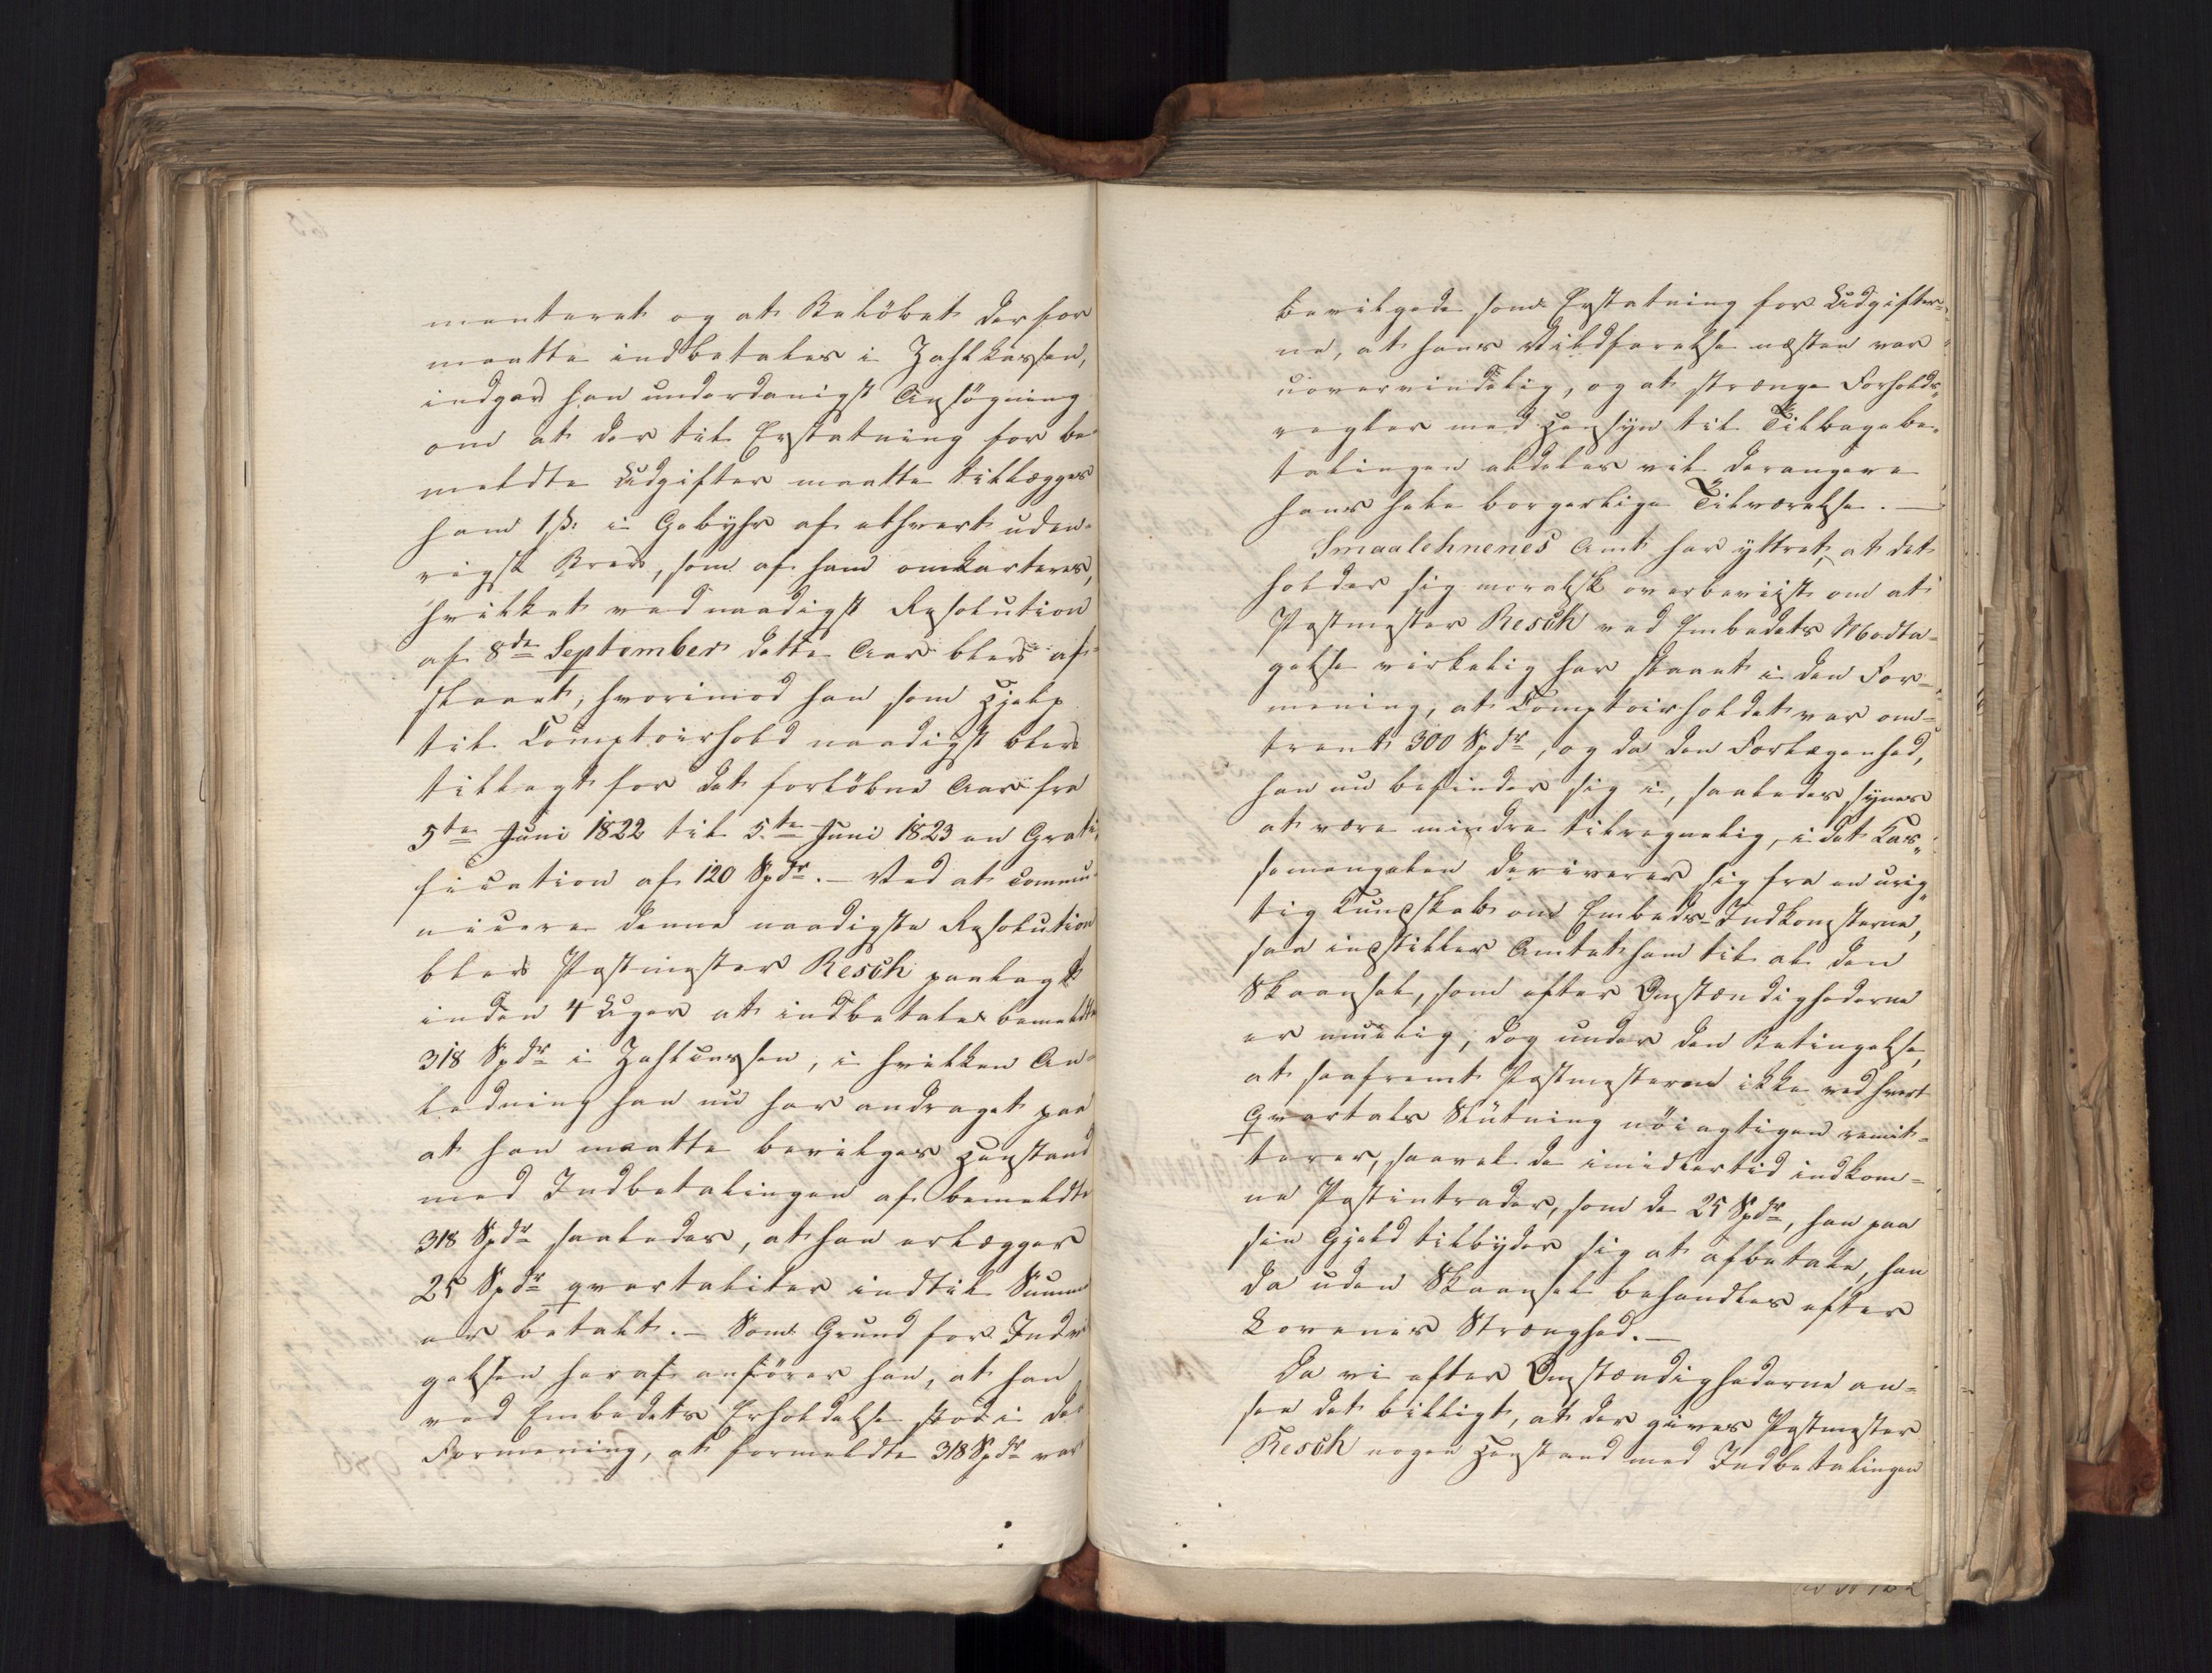 menteret og at Beløbet derfor
maatte indbetales i Zahlkassen,
indgav han underdanigst Ansøgning
om at der til Erstatning for be-
meldte Udgifter maatte tillægges
ham 1 ß: i Gebyhr af ethvert uden-
rigsk Brev, som af ham omkarteres,
hvilket ved naadigst Resolution
af 8de September dette Aar blev af-
slaaet, hvorimod han som Hjelp
til Comptoirhold naadigst blev
tillagt for det forløbne Aar fra
5te Juni 1822 til 5te Juni 1823 en Grati-
fication af 120 Spdr. – Ved at commu-
nicere denne naadigste Resolution
blev Postmester Resch paalagt
inden 4 Uger at indbetale bemeldte
318 Spdr i Zahlcassen, i hvilken An-
ledning han nu har andraget paa
at han maatte bevilges Henstand
med Indbetalingen af bemeldte
318 Spdr saaledes, at han erlægger
25 Spdr qvartaliter indtil Summen
er betalt. – Som Grund for Indvil-
gelsen heraf anfører han, at han
ved Embedets Erholdelse stod i den
Formening, at formeldte 318 Spdr var
bevilgede som Erstatning for Udgifter-
ne, at hans Vildfarelse næsten var
uovervindelig, og at strænge Forholds-
regler med Hensyn til Tilbagebe-
talingen aldeles vil derangere
hans hele borgerlige Tilværelse. –
Smaalehnenes Amt har yttret, at det
holder sig moralsk overbeviist om at
Postmester Resch ved Embedets Modta-
gelse virkelig har staaet i den For-
mening, at Comptoirholdet var om-
trent 300 Spdr, og da den Forlegenhed,
han nu befinder sig i, saaledes synes
at være mindre tilregnelig, i det Kas-
semangelen deriverer sig fra en urig-
tig Kundskab om Embeds-Indkomsterne,
saa indstiller Amtet ham til al den
Skaansel, som efter Omstændighederne
er muelig, dog under den Betingelse,
at saafremt Postmesteren ikke ved hvert
Qvartals Slutning nøiagtigen remit-
terer, saavel de imidlertid indkom-
ne Postintrader, som de 25 Spdr, han paa
sin Gjeld tilbyder sig at afbetale, han
da uden Skaansel behandles efter
Lovenes Strænghed. –
Da vi efter Omstændighederne an-
see det billigt, at der gives Postmester
Resch nogen Henstand med Indbetalingen